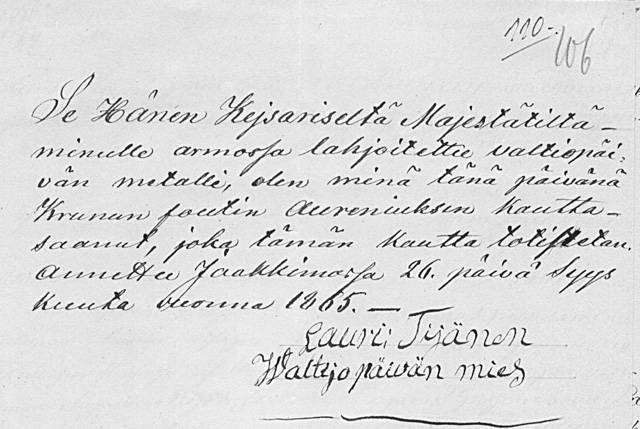 110-.
106
Se Hänen Kejsariseltä Majestätiltä-
minulle armossa lahjoitettu valtiopäi-
vän metalli, olen minä tänä päivänä
Krunun foutin Aureniuksen kautta-
saanut, joka tämän kautta totistetan.
Annettu Jaakkimassa 26. päivä Syys
kuuta vuonna 1865. —
Lauri Tijänen
Waltijopäivän mies